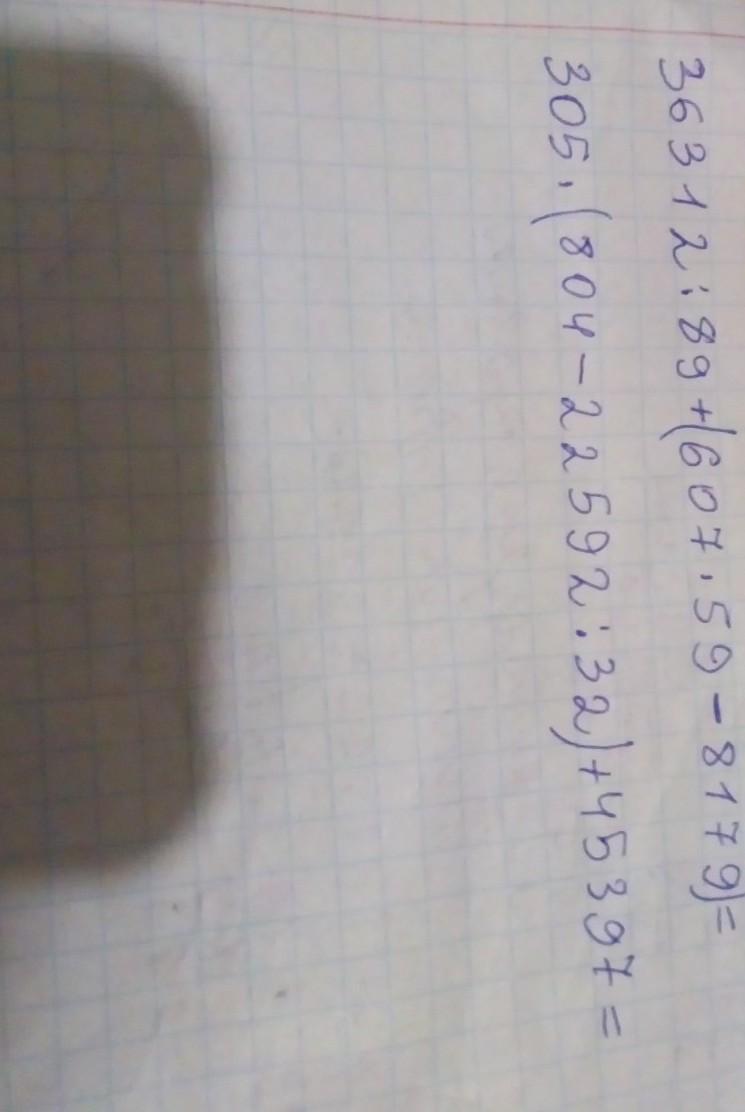 36312:89+(607·59-8179)=
305·(804-22592:32)+45397=